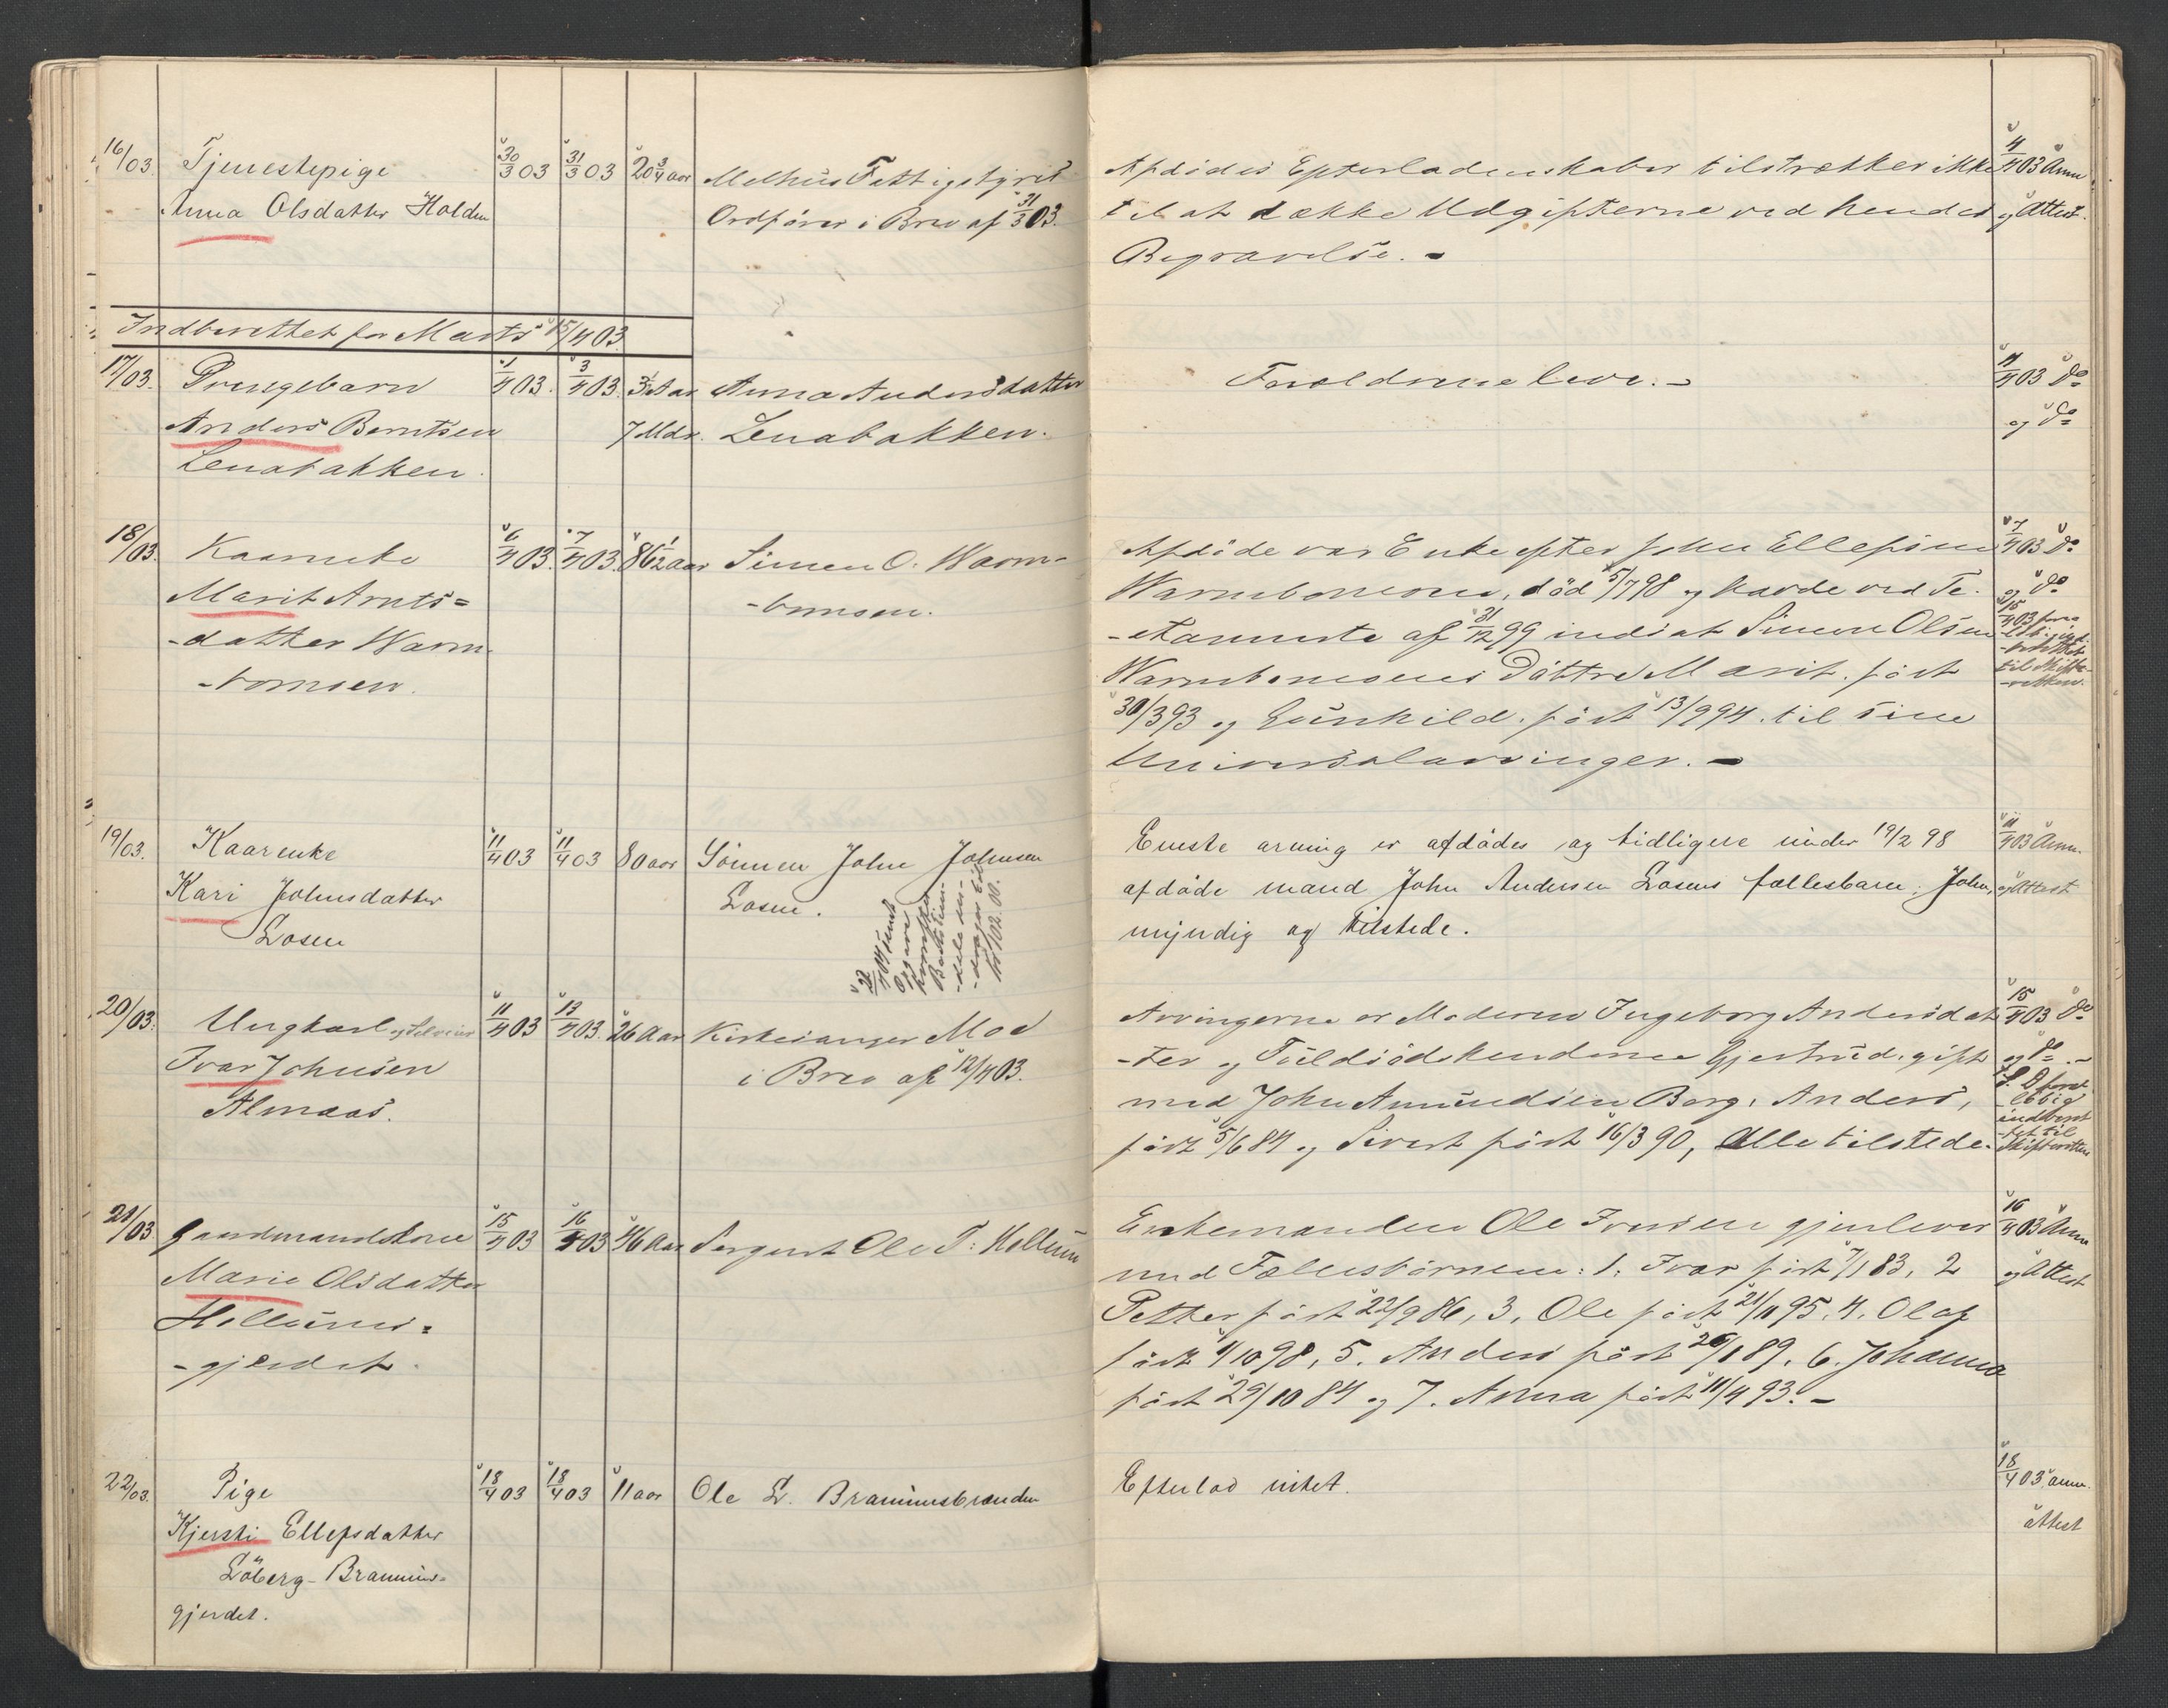 16/03. Tjenestepige 30/3 03 31/3 03 20 3/4 aar Melhus Fattigstyres Afdødes Efterladenskaber tilstrækker ikke 4/4 03 Anm
Anna Olsdatter Holden Ordfører i Brev af 31/3 03. til at dække Udgifterne ved hendes og Attest.
Begravelse. -
Indberettet for Marts 15/4 03.
17/03. Drengebarn 1/4 03. 3/4 03. 3 Aar Anna Andersdatter Forældrene leve. - 4/4 03 do
Anders Berntsen 7 Mdr. Lenabakken. og do
Lenabakken.
18/03. Kaarenke 6/4 03. 7/4 03. 86 1/2 aar Simen O. Warm- Afdøde var Enke efter John Ellefsen 7/4 03 do
Marit Arnts= -bomoen. Warmbomoen, død 5/7 98 og havde ved Te- og do
-datter Warm- -stamente af 31/12 99 indsat Simen Olsen
-bomoen. Warmbomoens Døttre Marit, født til Skifte-
-retten.
30/3 93 og Gunhild, født 13/9 94. til sine
Universalarvinger. -
19/03. Kaarenke 11/4 03 11/4 03 80 aar Sønnen John Johnsen Eneste arving er afdødes og tidligere under 19/2 98 11/4 03 Anm.
Kari Johnsdatter Losen. afdøde mand John Andersen Losens fællesbarn, John, og Attest
Losen myndig og tilstede.
20/03. Ungkarl og Selveier 11/4 03 13/4 03. 26 Aar Kirkesanger Moe Arvingerne er Moderen Ingeborg Andersdat 15/4 03 do
Ivar Johnsen i Brev af 12/4 03. -ter og Fuldsødskendene Gjertrud, gift og do. -
Almaas. med John Amundsen Borg, Anders,
født 5/6 84 og Sivert født 16/3 90, Alle tilstede. Skifteretten
21/03. Gaardmandskone 15/4 03 16/4 03 46 Aar Sergeant Ole T. Hollum Enkemanden Ole Iversen gjenlever 16/4 03 Anm
Marie Olsdatter med Fællesbørnene: 1. Ivar født 7/1 83, 2 og Attest
Hollums= Petter født 22/9 86, 3, Ole født 21/11 95. 4. Olaf
-gjerdet. født 1/10 98, 5. Anders født 26/1 89, 6. Johanna
født 29/10 84 og 7. Anna født 11/4 93. -
22/03. Pige 18/4 03 18/4 03 11 aar Ole L. Bramnesbrænden Efterlod intet. 18/4 03, anm.
Kjersti Ellefsdatter attest
Løberg-
gjerdet.